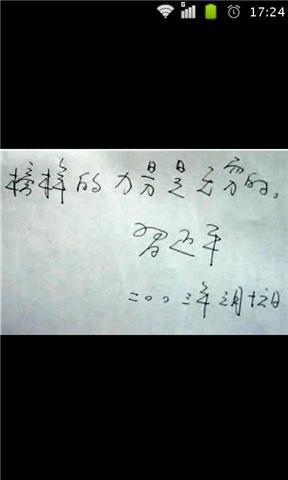 17:24
榜样的力量是无穷的。
習近平
二〇〇三年